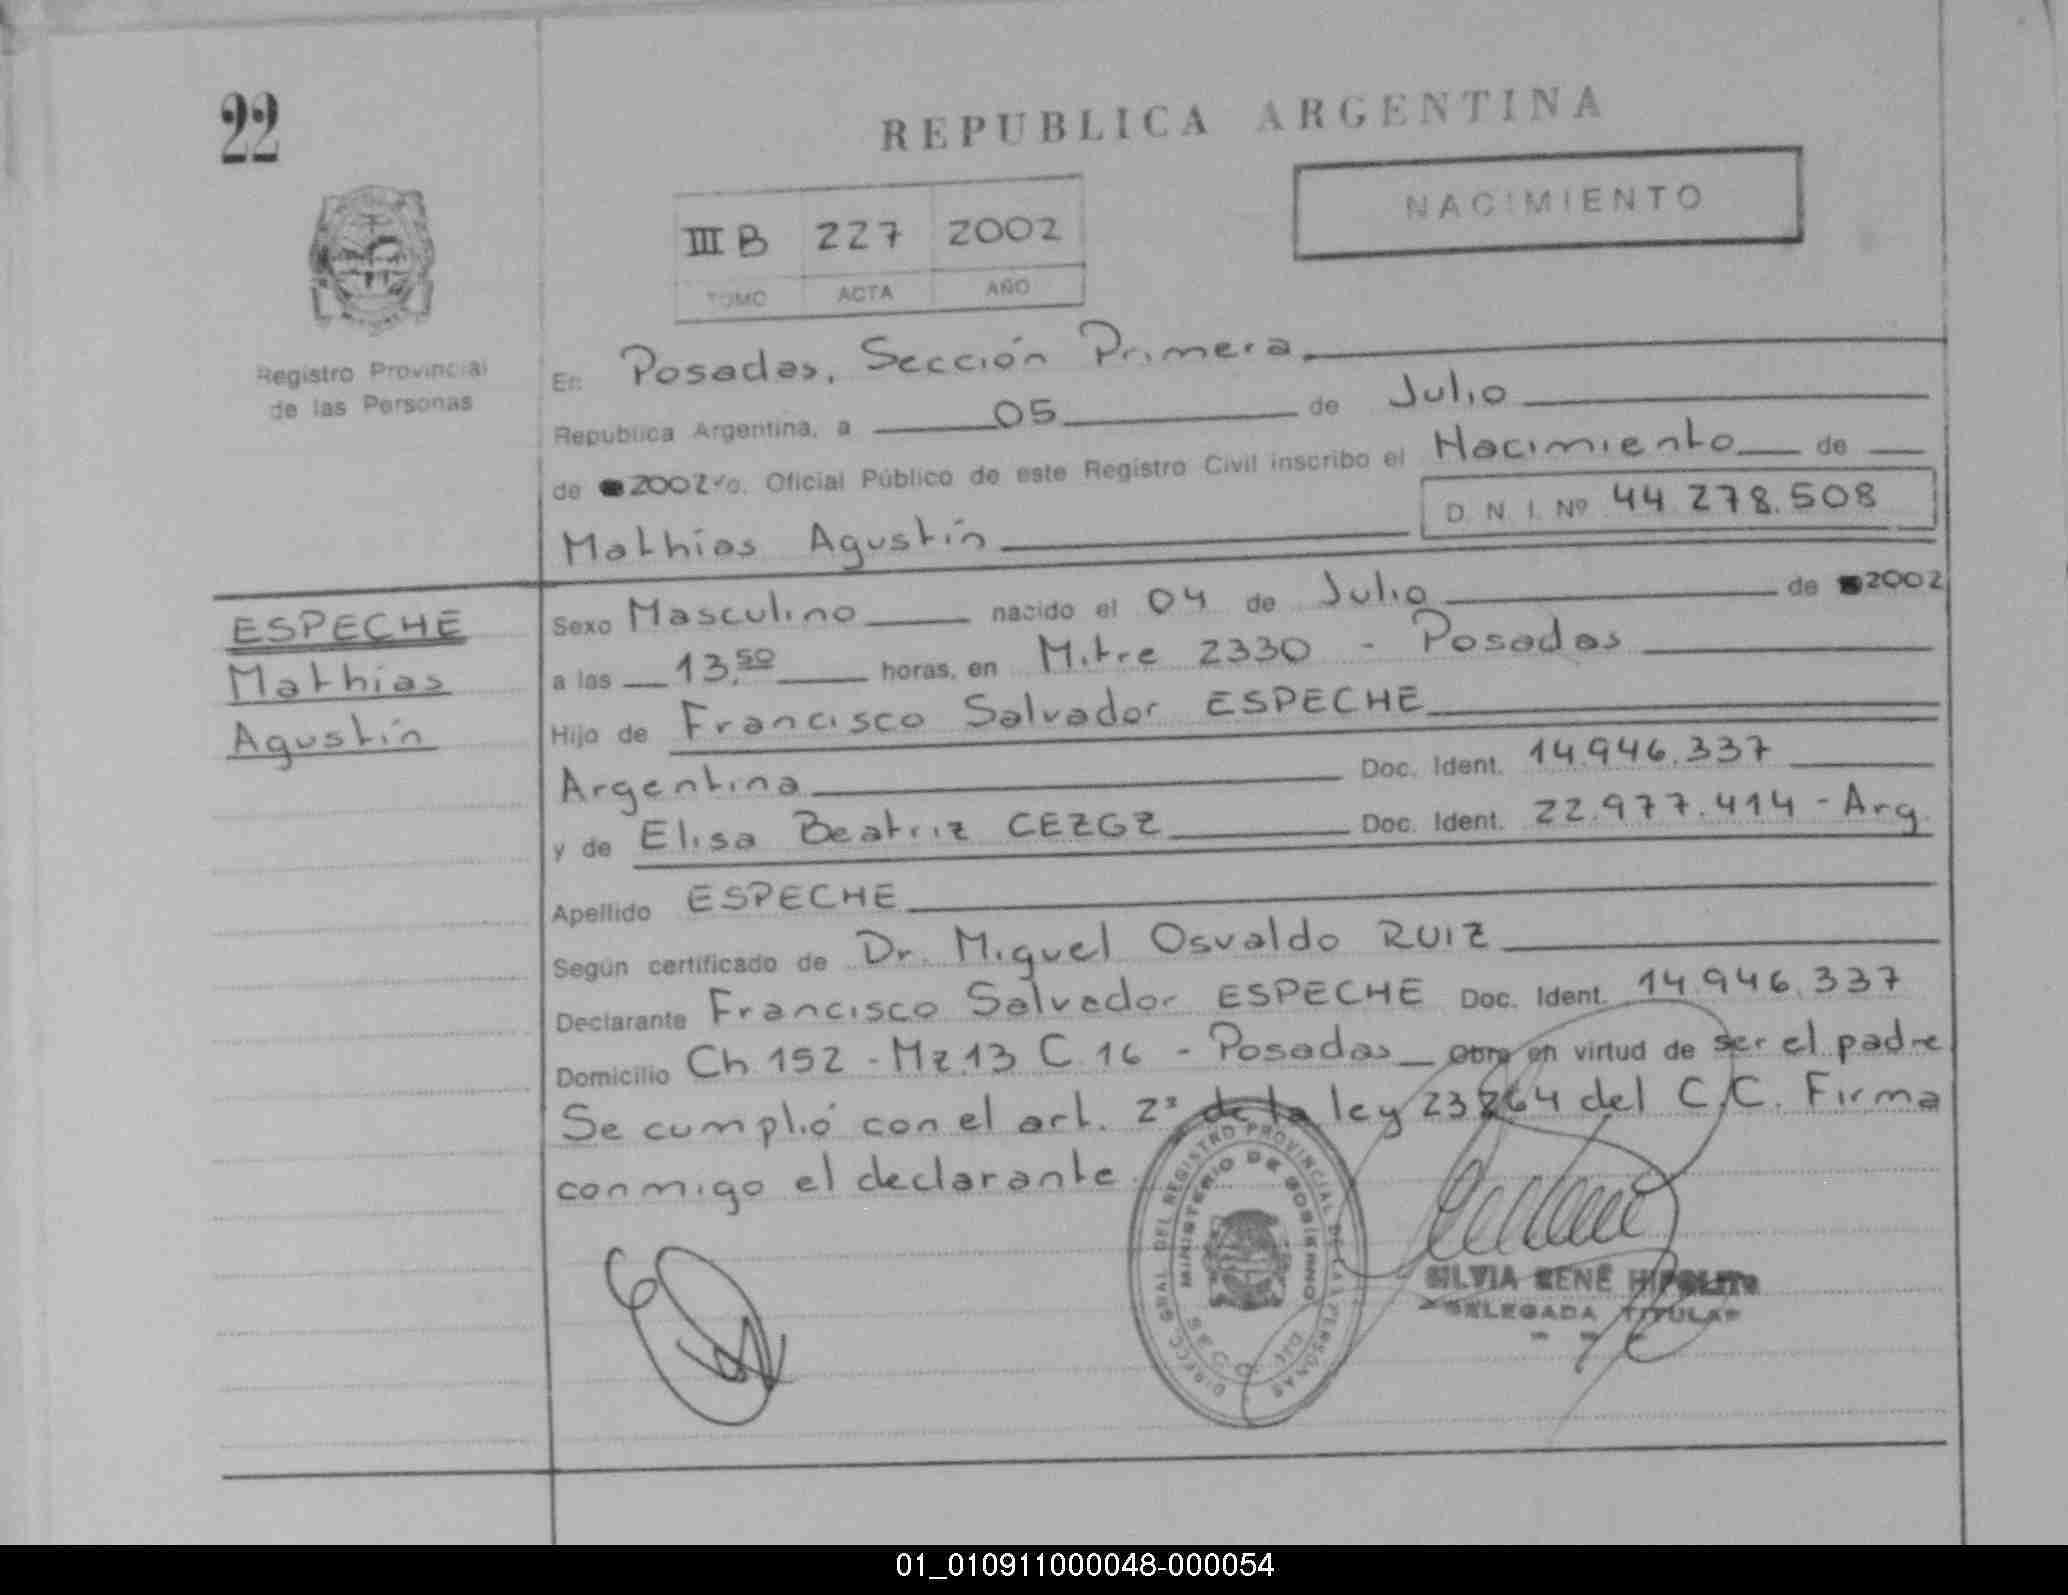 22
REPUBLICA ARGENTINA
NACIMIENTO
III B 227 2002
TOMO ACTA AÑO
Registro Provincial
de las Personas
En Posadas, Sección Primera.
Republica Argentina, a 05 de Julio
de 2002 yo. Oficial Público de este Registro Civil inscribo el Nacimiento de
Mathias Agustín D. N. I. Nº 44.278.508
ESPECHE
Mathias
Agustín
Sexo Masculino nacido el 04 de Julio de 2002
a las 13,50 horas, en Mitre 2330 - Posadas
Hijo de Francisco Salvador ESPECHE
Argentina Doc. Ident. 14.946.337
y de Elisa Beatriz CEZGZ Doc. Ident. 22.977.414 - Arg.
Apellido ESPECHE
Según certificado de Dr. Miguel Osvaldo RUIZ
Declarante Francisco Salvador ESPECHE Doc. Ident. 14.946.337
Domicilio Ch 152 - Mz.13 C.16 - Posadas Obra en virtud de ser el padre
Se cumplió con el art. 2º de la ley 23264 del C.C. Firma
conmigo el declarante.
DIRECC. GRAL DEL REGISTRO PROVINCIAL DE LAS PERSONAS
MINISTERIO DE GOBIERNO
SILVIA RENE HIPOLITO
DELEGADA TITULAR
01_010911000048-000054